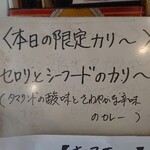 〈本日の限定カリ〜〉
セロリとシーフードのカリ〜
(タマリンドの酸味とさわやかな辛味
のカレー)